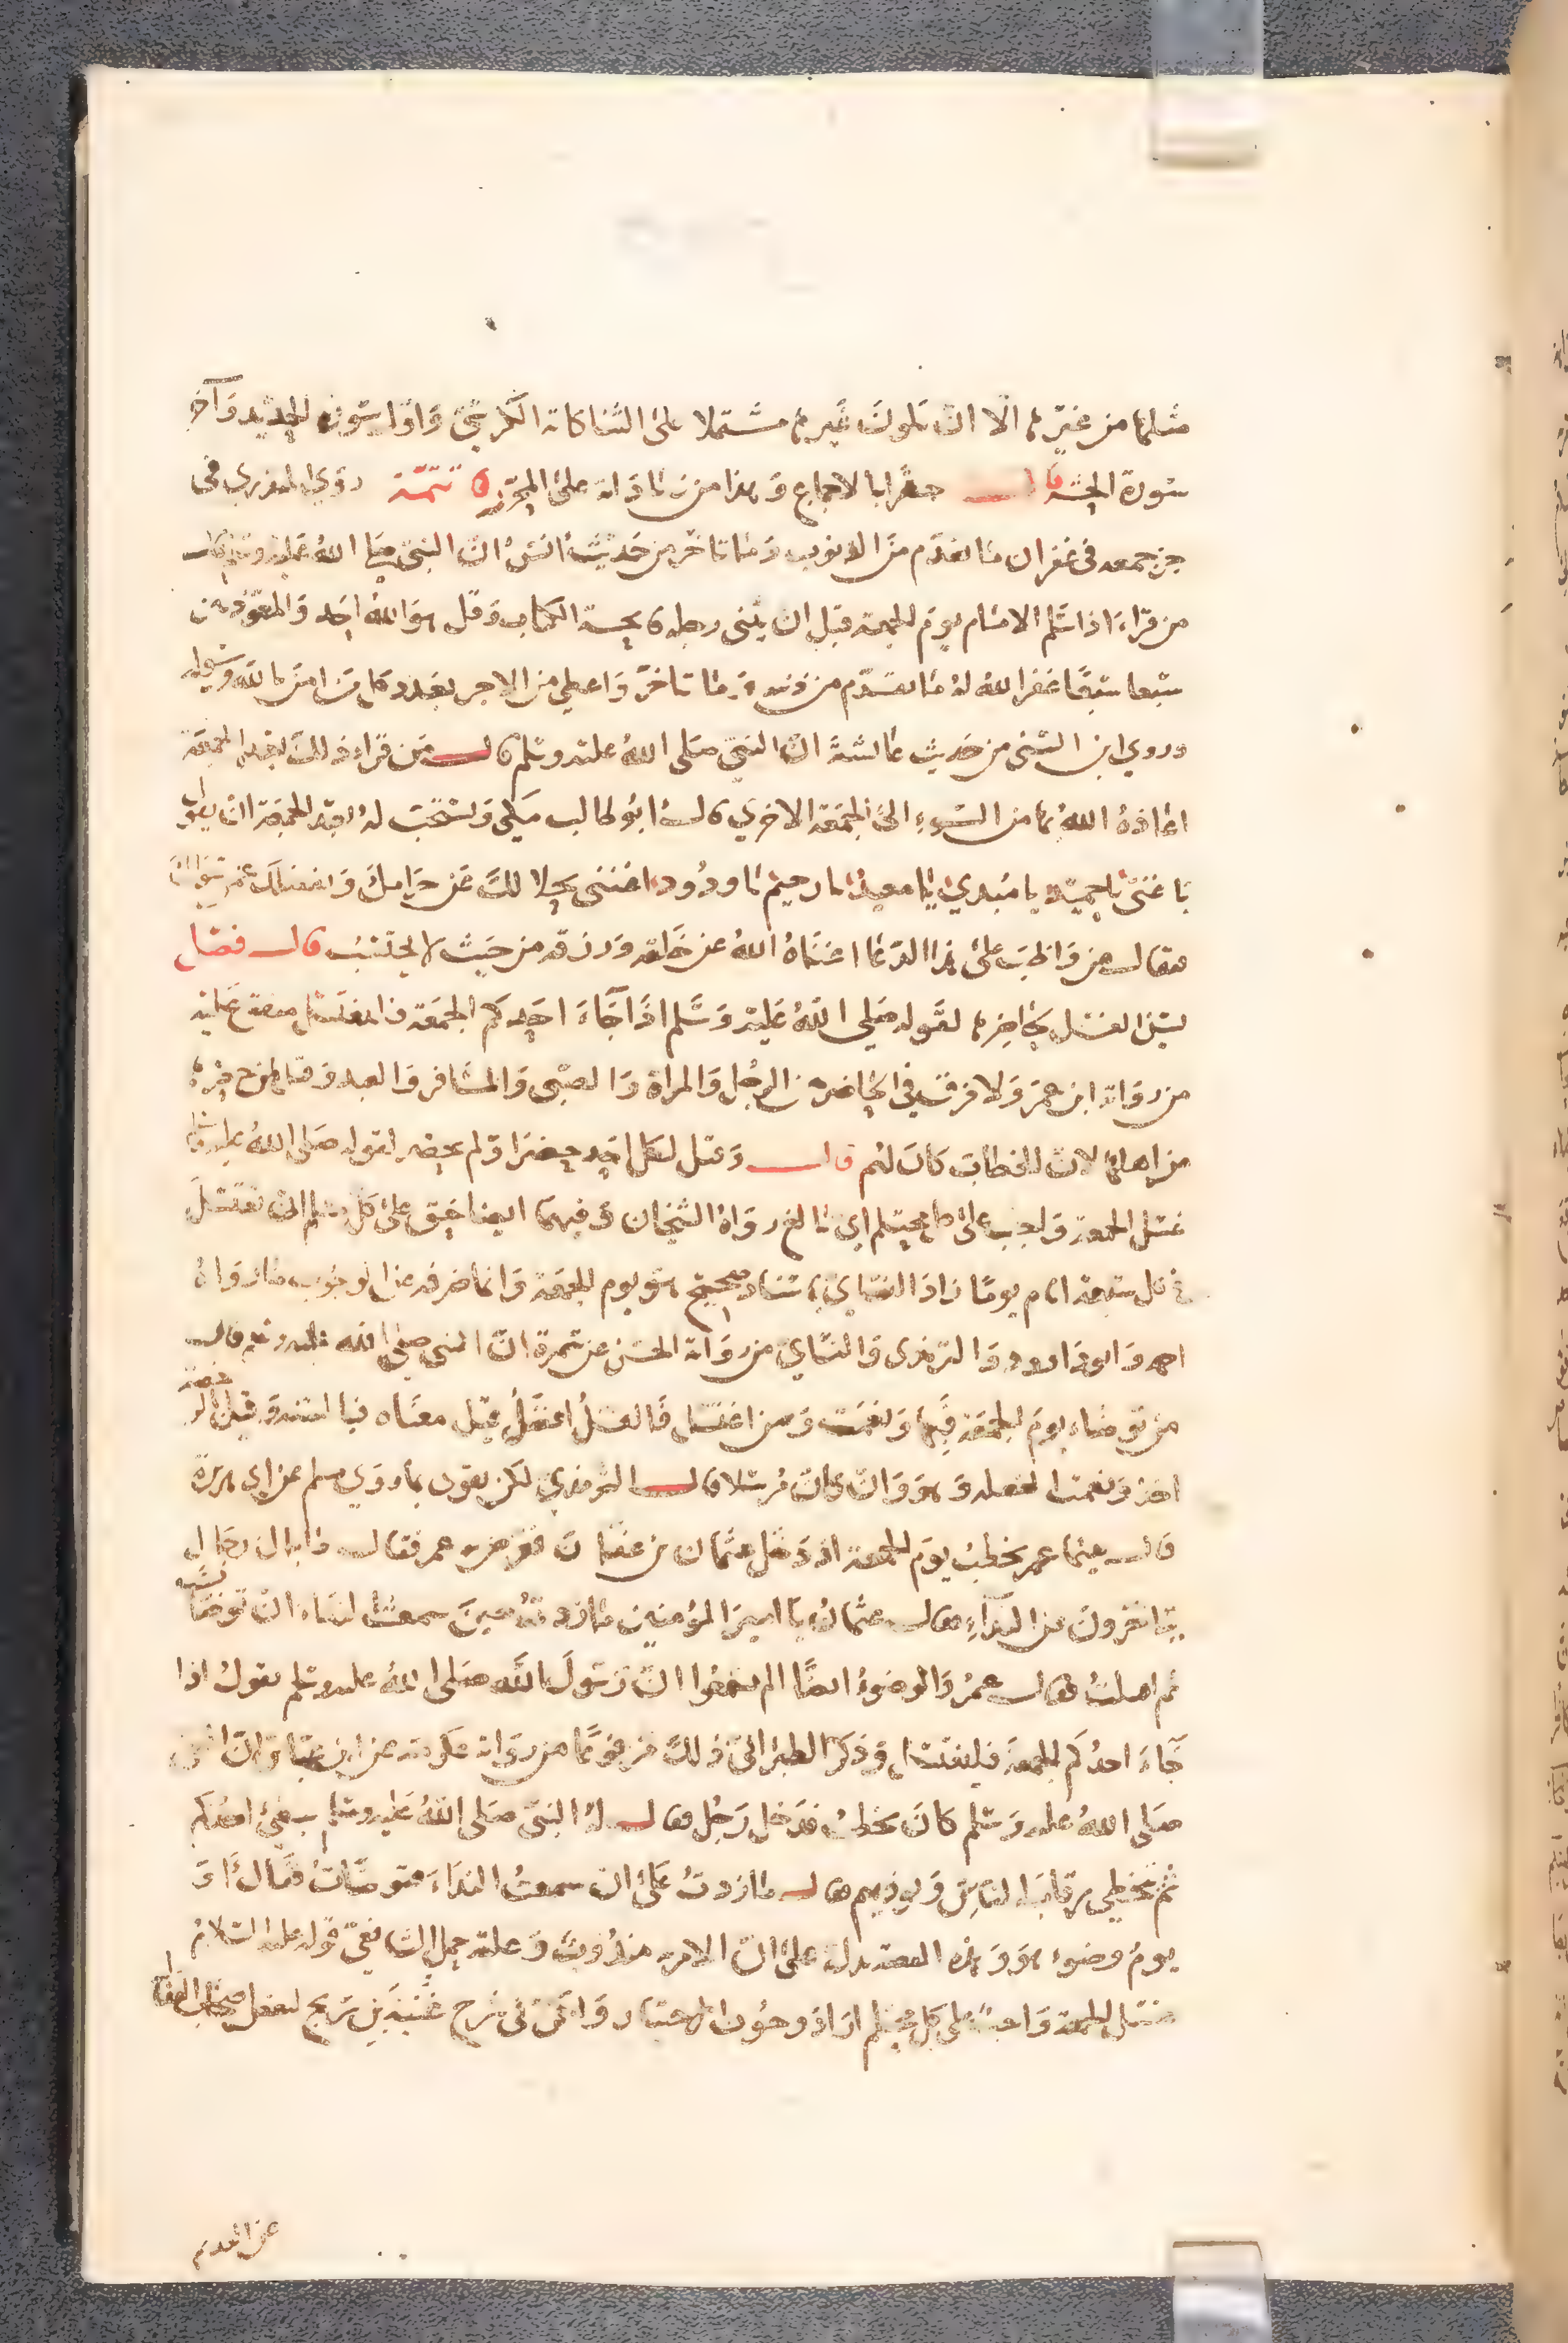 مثلها من غيرها الا ان تكون غيرها مشتملا على الثنا كاية الكرسي واول سورة الحديد وآخر
سورة الحشر قال جهرا بالاجماع وهذا من زياداته على المحرر تتمة روى المنذري فى
جزء جمعه فى غفران ما تقدم من الذنوب وما تاخر من حديث انس ان النبي صلى الله عليه وسلم قال
من قراء اذا سلم الامام يوم الجمعة قبل ان يثنى رجله فاتحة الكتاب وقل هو الله احد والمعوذتين
سبعا سبعا غفر الله له ما تقدم من ذنبه وما تاخر واعطي من الاجر بعدد كل من امن بالله ورسوله
وروي ابن السنى من حديث عائشة ان النبي صلى الله عليه وسلم قال من قراء ذلك بعد الجمعة
اعاذه الله بها من السوء الى الجمعة الاخرى قال ابو طالب مكي ويستحب له بعد الجمعة ان يقول
يا غني يا حميد يا مبدي يا معيد يا رحيم يا ودود اغننى بحلالك عن حرامك وبفضلك عمن سواك
فقال من واظب على هذا الدعا اغناه الله عن خلقه ورزقه من حيث لا يحتسب قال فصل
يسن الغسل لحاضرها لقوله صلى الله عليه وسلم اذا جاء احدكم الجمعة فليغتسل متفق عليه
من رواية ابن عمر ولا فرق في الحاضر بين الرجل والمراة والصبى والمسافر والعبد وقيل
من اهلها لان الخطاب كان لهم قال وقيل لكل احد حضر او لم يحضر لقوله صلى الله عليه وسلم
غسل الجمعة واجب على كل محتلم اي بالغ رواه الشيخان وفيهما ايضا حق على كل مسلم ان يغتسل
في كل سبعة ايام يوما زاد النساي باسناد صحيح هو يوم الجمعة وانما صرفه عن الوجوب ما رواه
احمد وابو داوود والترمذى والنساي من رواية الحسن عن سمرة ان النبى صلى الله عليه وسلم قال
من توضاء يوم الجمعة فبها ونعمت ومن اغتسل فالغسل افضل قيل معناه فبالسنة وقيل بالرخصة
اخذ ونعمت الخصلة وهو وان كان مرسلا قال الترمذي لكن يقوى بما روي مسلم عن ابى هريرة
قال بينما عمر يخطب يوم الجمعة اذ دخل عثمان بن عفان فعرض به عمر فقال ما بال رجال
يتاخرون عن النداء فقال عثمان يا امير المؤمنين ما زدت حين سمعت النداء ان توضات
ثم اقبلت فقال عمر والوضوء ايضا الم تسمعوا ان رسول الله صلى الله عليه وسلم يقول اذا
جاء احدكم الجمعة فليغتسل وذكر الطبراني ذلك مرفوعا من رواية عكرمة عن ابن عباس ان النبى
صلى الله عليه وسلم كان يخطب فدخل رجل فقال له النبى صلى الله عليه وسلم يجئ احدكم
ثم يخطي رقاب الناس ويوذيهم فقال ما زدت على ان سمعت النداء فتوضات فقال او
يوم وضوء هو وهذه القصة يدل على ان الامر مندوب وعليه حمل الشافعي قوله عليه السلام
غسل الجمعة واجب على كل محتلم اراد وجوب اختيار ولكن فى شرح غنية بن سريج لبعض اصحاب القفال
عن القديم